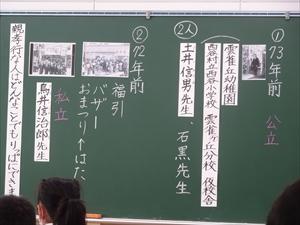 ①73年前
公立
雲雀丘幼稚園
西谷村立西谷小学校 雲雀ヶ丘分校 仮校舎
2人
土井信男先生、石黒先生
②72年前
福引
バザー
おまつり↑はた
私立
鳥井信治郎先生
親孝行な人はどんなことでもりっぱにできま